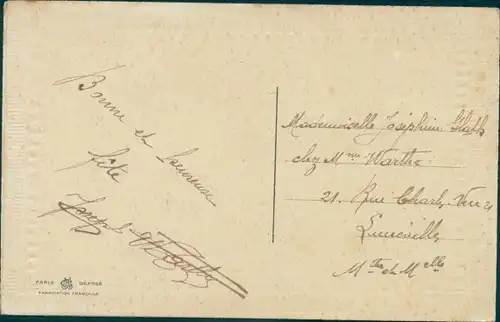 Bonne et heureuse
fête
Joseph
PARIS DÉPOSÉ
FABRICATION FRANÇAISE
Mademoiselle Joséphine
chez Mme Warthe
21. Rue Charles
Lunéville
Mthe et Melle